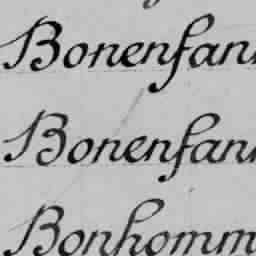 Bonenfan
Bonenfan
Bonhomm